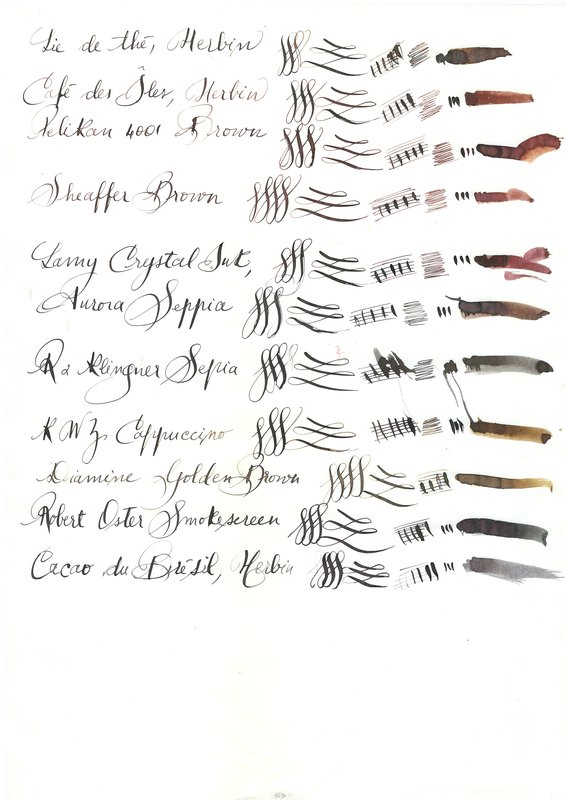 Lie de thé, Herbin
Café des Îles, Herbin
Pelikan 4001 Brown
Sheaffer Brown
Lamy Crystal Ink,
Aurora Seppia
R & Klingner Sepia
KWZ Cappuccino
Diamine Golden Brown
Robert Oster Smokescreen
Cacao du Brésil, Herbin